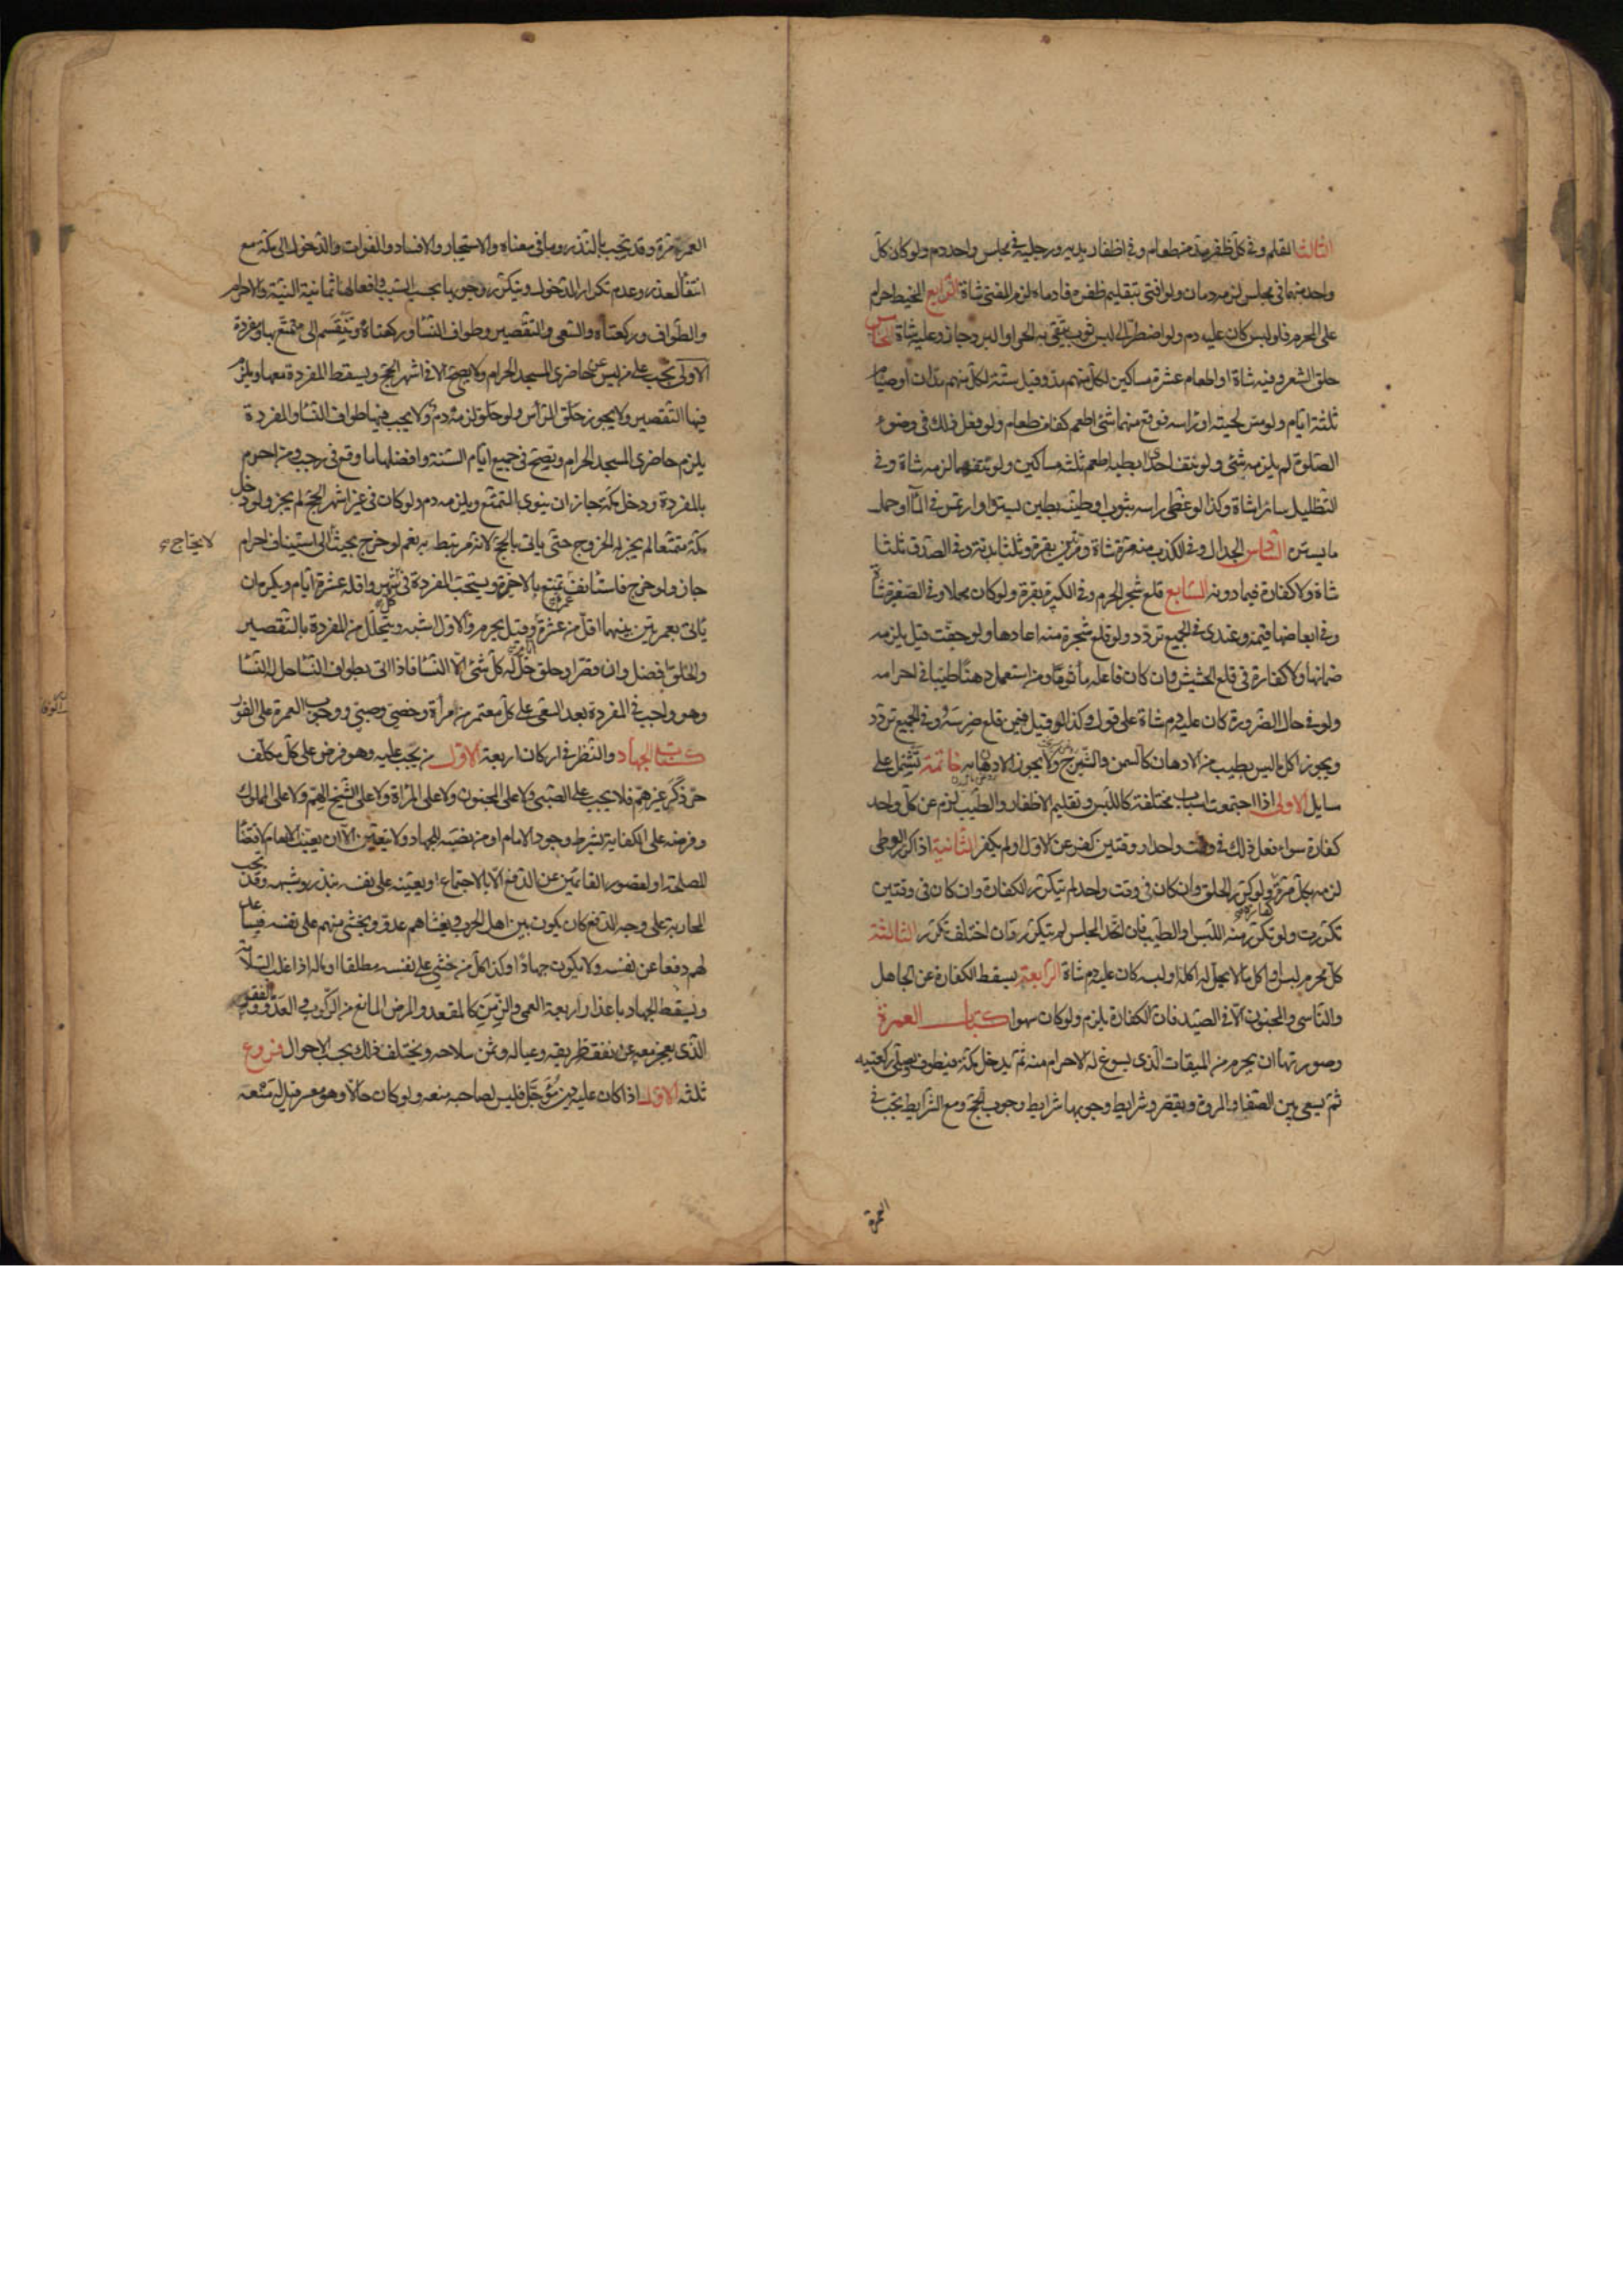 الثالث القلم وفى كل ظفر مد من طعام وفى اظفار يديه ورجليه فى مجلس واحد دم ولو كان كل
واحد منهما فى مجلس لزمه دمان ولو افتى بتقليم ظفره فادماه لزم المفتى شاة الرابع المخيط حرام
على المحرم فلو لبس كان عليه دم ولو اضطر الى لبس ثوب يتقى به الحر او البرد جاز وعليه شاة الخامس
حلق الشعر وفيه شاة او اطعام عشرة مساكين لكل منهم مد وقيل ستة لكل منهم مدان او صيام
ثلثة ايام ولو مس لحيته او راسه فوقع منهما شئ اطعم كفا من طعام ولو فعل ذلك فى وضوء
الصلوة لم يلزمه شئ ولو نتف احد ابطيه اطعم ثلثه مساكين ولو نتفهما لزمه شاة وفى
التظليل سائرا شاة وكذا لو غطى راسه بثوب او طينه بطين يستره او ارتمس فى الماء او حمل
ما يستره السادس الجدال وفى الكذب منه مرة شاة ومرتين بقرة وثلثا بدنة وفى الصدق ثلثا
شاة ولا كفارة فيما دونه السابع قلع شجر الحرم وفى الكبيرة بقرة ولو كان محلا وفى الصغيرة شاة
وفى ابعاضها قيمة وعندى فى الجميع تردد ولو قلع شجرة منه اعادها ولو جفت قيل يلزمه
ضمانها ولا كفارة فى قلع الحشيش وان كان فاعله مأثوما ومن استعمل دهنا طيبا فى احرامه
ولو فى حال الضرورة كان عليه دم شاة على قول وكذا لو قيل فيمن قلع ضرسه وفى الجميع تردد
ويجوز اكل ما ليس بطيب من الادهان كالسمن والشيرج ولا يجوز الادهان به خاتمة تشتمل على
مسايل الاولى اذا اجتمعت اسباب مختلفة كاللبس وتقليم الاظفار والطيب لزم عن كل واحد
كفارة سواء فعل ذلك فى وقت واحد او وقتين كفر عن الاول او لم يكفر الثانية اذا كرر الوطى
لزمه بكل مرة ولو كرر الحلق وان كان فى وقت واحد لم يتكرر الكفارة وان كان فى وقتين
تكررت ولو تكرر منه اللبس او الطيب فان اتحد المجلس لم يتكرر وان اختلف تكرر الثالثة
كل محرم لبس او اكل ما لا يحل له اكله او لبسه كان عليه دم شاة الرابعة يسقط الكفارة عن الجاهل
والناسى والمجنون الا فى الصيد فان الكفارة يلزم ولو كان سهوا كتاب العمرة
وصورتها ان يحرم من الميقات الذى يسوغ له الاحرام منه ثم يدخل مكة فيطوف ويصلى ركعتيه
ثم يسعى بين الصفا والمروة ويقصر وشرايط وجوبها شرايط وجوب الحج ومع الشرايط يجب فى
العمرة
العمر مرة وقد يجب بالنذر وما فى معناه والاستيجار والافساد والفوات والدخول الى مكة مع
انتفاء العذر وعدم تكرار الدخول ويتكرر وجوبها بحسب السبب وافعالها ثمانية النية والاحرام
والطواف وركعتاه والسعى والتقصير وطواف النساء وركعتاه وينقسم الى متمتع بها ومفردة
الاولى تجب على من ليس من حاضرى المسجد الحرام ولا يصح الا فى اشهر الحج ويسقط المفردة معها ويلزم
فيها التقصير ولا يجوز حلق الرأس ولو حلق لزمه دم ولا يجب فيها طواف النساء والمفردة
يلزم حاضرى المسجد الحرام وتصح فى جميع ايام السنة وافضلها ما وقع فى رجب ومن احرم
بالمفردة ودخل مكة جاز ان ينوى التمتع ويلزمه دم ولو كان فى غير اشهر الحج لم يجز ولو دخل
مكة متمتعا لم يجز له الخروج حتى ياتى بالحج لانه مرتبط به نعم لو خرج بحيث الى استيناف احرام
لا يحتاج
جاز ولو خرج فاستأنف تمتع بالاخيرة ويستحب المفردة فى كل شهر واقله عشرة ايام ويكره ان
ياتى بعمرتين بينهما اقل من عشرة وقيل يحرم والاول اشبه ويتحلل من المفردة بالتقصير
والحلق افضل وان قصر او حلق حل له كل شئ الا النساء فاذا اتى بطواف النساء حل له النسا
وهو واجب فى المفردة بعد السعى على كل معتمر من امرأة وخصى وصبى ووجوب العمرة على الفور
كتاب الجهاد والنظر فى اركان اربعة الاول من يجب عليه وهو فرض على كل مكلف
حر ذكر غير هم فلا يجب على الصبى ولا على المجنون ولا على المرأة ولا على الشيخ الهم ولا على المملوك
وفرضه على الكفاية بشرط وجود الامام او من نصبه للجهاد ولا يتعين الا ان يعينه الامام لاقتضاء
المصلحة او لقصور القائمين عن الدفع الا بالاجتماع او يعينه على نفسه بنذر وشبهه وقد يجب
المحاربة على وجه الدفع كان يكون بين اهل الحرب ويغشاهم عدو ويخشى منهم على نفسه فيساعد
لهم دفعا عن نفسه ولا يكون جهادا وكذا كل من خشى على نفسه مطلقا او ماله اذا غلب السلامة
ويسقط الجهاد باعذار اربعة العمى والزمن كالمقعد والمرض المانع من الركوب والعدو والفقر
الذى يعجز معه عن نفقة طريقه وعياله وثمن سلاحه ويختلف ذلك بحسب الاحوال فروع
ثلثه الاول اذا كان عليه دين مؤجل فليس لصاحبه منعه ولو كان حالا وهو معسر قيل له منعه